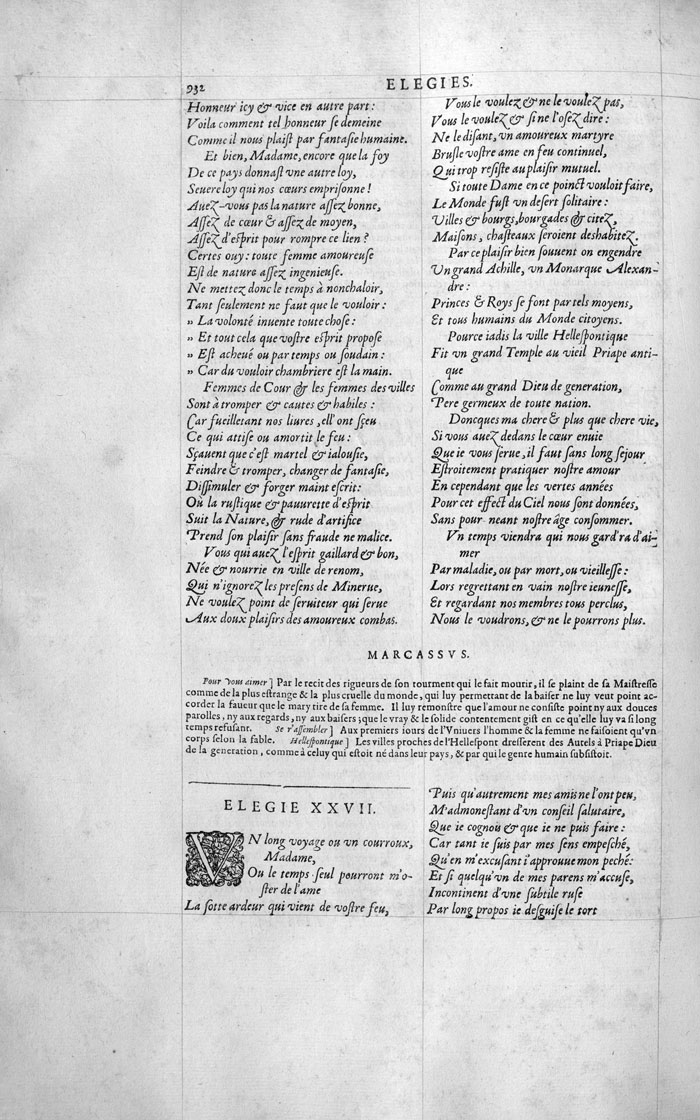 932
ELEGIES.
Honneur icy & vice en autre part:
Voila comment tel honneur ſe demeine
Comme il nous plaiſt par fantaſie humaine.
Et bien, Madame, encore que la foy
De ce pays donnaſt vne autre loy,
Seuere loy qui nos cœurs empriſonne!
Auez-vous pas la nature aſſez bonne,
Aſſez de cœur & aſſez de moyen,
Aſſez d'eſprit pour rompre ce lien?
Certes ouy: toute femme amoureuſe
Eſt de nature aſſez ingenieuſe.
Ne mettez donc le temps à nonchaloir,
Tant ſeulement ne faut que le vouloir:
» La volonté inuente toute choſe:
» Et tout cela que voſtre eſprit propoſe
» Eſt acheué ou par temps ou ſoudain:
» Car du vouloir chambriere eſt la main.
Femmes de Cour & les femmes des villes
Sont à tromper & cautes & habiles:
Car fueilletant nos liures, ell' ont ſçeu
Ce qui attiſe ou amortit le feu:
Sçauent que c'eſt martel & ialouſie,
Feindre & tromper, changer de fantaſie,
Diſſimuler & forger maint eſcrit:
Où la ruſtique & pauurette d'eſprit
Suit la Nature, & rude d'artifice
Prend ſon plaiſir ſans fraude ne malice.
Vous qui auez l'eſprit gaillard & bon,
Née & nourrie en ville de renom,
Qui n'ignorez les preſens de Minerue,
Ne voulez point de ſeruiteur qui ſerue
Aux doux plaiſirs des amoureux combas.
Vous le voulez & ne le voulez pas,
Vous le voulez & ſi ne l'oſez dire:
Ne le diſant, vn amoureux martyre
Bruſle voſtre ame en feu continuel,
Qui trop reſiſte au plaiſir mutuel.
Si toute Dame en ce poinct vouloit faire,
Le Monde fuſt vn deſert ſolitaire:
Villes & bourgs, bourgades & citez,
Maiſons, chaſteaux ſeroient deshabitez.
Par ce plaiſir bien ſouuent on engendre
Vn grand Achille, vn Monarque Alexan-
dre:
Princes & Roys ſe font par tels moyens,
Et tous humains du Monde citoyens.
Pource iadis la ville Helleſpontique
Fit vn grand Temple au vieil Priape anti-
que
Comme au grand Dieu de generation,
Pere germeux de toute nation.
Doncques ma chere & plus que chere vie,
Si vous auez dedans le cœur enuie
Que ie vous ſerue, il faut ſans long ſejour
Eſtroitement pratiquer noſtre amour
En cependant que les vertes années
Pour cet effect du Ciel nous ſont données,
Sans pour-neant noſtre âge conſommer.
Vn temps viendra qui nous gard'ra d'ai-
mer
Par maladie, ou par mort, ou vieilleſſe:
Lors regrettant en vain noſtre ieuneſſe,
Et regardant nos membres tous perclus,
Nous le voudrons, & ne le pourrons plus.
MARCASSVS.
Pour vous aimer] Par le recit des rigueurs de ſon tourment qui le fait mourir, il ſe plaint de ſa Maiſtreſſe
comme de la plus eſtrange & la plus cruelle du monde, qui luy permettant de la baiſer ne luy veut point ac-
corder la faueur que le mary tire de ſa femme. Il luy remonſtre que l'amour ne conſiſte point ny aux douces
parolles, ny aux regards, ny aux baiſers; que le vray & le ſolide contentement giſt en ce qu'elle luy va ſi long
temps refuſant. Se r'aſſembler] Aux premiers iours de l'Vniuers l'homme & la femme ne faiſoient qu'vn
corps ſelon la fable. Helleſpontique] Les villes proches de l'Helleſpont dreſſerent des Autels à Priape Dieu
de la generation, comme à celuy qui eſtoit né dans leur pays, & par qui le gente humain ſubſiſtoit.
ELEGIE XXVII.
VN long voyage ou vn courroux,
Madame,
Ou le temps ſeul pourront m'o-
ſter de l'ame
La ſotte ardeur qui vient de voſtre feu,
Puis qu'autrement mes amis ne l'ont peu,
M'admoneſtant d'vn conſeil ſalutaire,
Que ie cognois & que ie ne puis faire:
Car tant ie ſuis par mes ſens empeſché,
Qu'en m'excuſant i'approuue mon peché:
Et ſi quelqu'vn de mes parens m'accuſe,
Incontinent d'vne ſubtile ruſe
Par long propos ie deſguiſe le tort